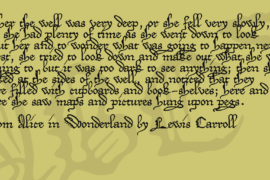 her the well was very deep, or she fell very slowly,
she had plenty of time as she went down to look
ut her and to wonder what was going to happen nex
st, she tried to look down and make out what she w
ing to, but it was too dark to see anything; then sh
ed at the sides of the well, and noticed that they
re filled with cupboards and book-shelves; here and
re she saw maps and pictures hung upon pegs.
om Alice in Wonderland by Lewis Carroll